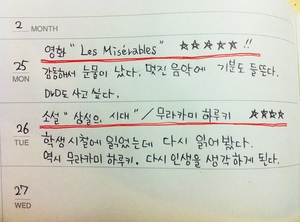 2 MONTH
영화 "Los Misérables" ☆☆☆☆☆!!
25
MON
감동해서 눈물이 났다. 멋진 음악에 기분도 들뜬다.
DVD도 사고 싶다.
소설 "상실의 시대" / 무라카미 하루키 ☆☆☆☆
26
TUE
학생시절에 읽었는데 다시 읽어봤다.
역시 무라카미 하루키. 다시 인생을 생각하게 된다.
27
WED